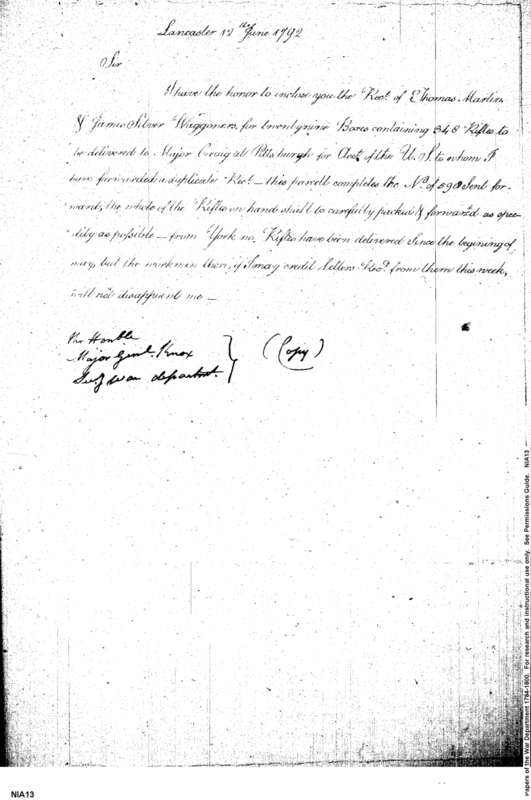 Lancaster 12th June 1792
Sir
I have the honor to inclose you the Rect. of Thomas Martin
& James Silver Waggoners, for twentynine Boxes containing 348 Rifles to
be delivered to Major Craig at Pittsburgh for Acct. of the U. S. to whom I
have forwarded a duplicate Rect. — this parcell completes the No. of 898 Sent for-
ward, the whole of the Rifles on hand shall be carefully packed & forward as spee-
dily as possible — from York no Rifles have been delivered Since the begining of
may, but the workmen there, if I may credit letters Recd. from them this week,
will not disappoint me —
The Honble
Major Genl. Knox
war departnt.
(Copy)
Papers of the War Department 1784-1800. For research and instructional use only. See Permissions Guide. NIA13
NIA13